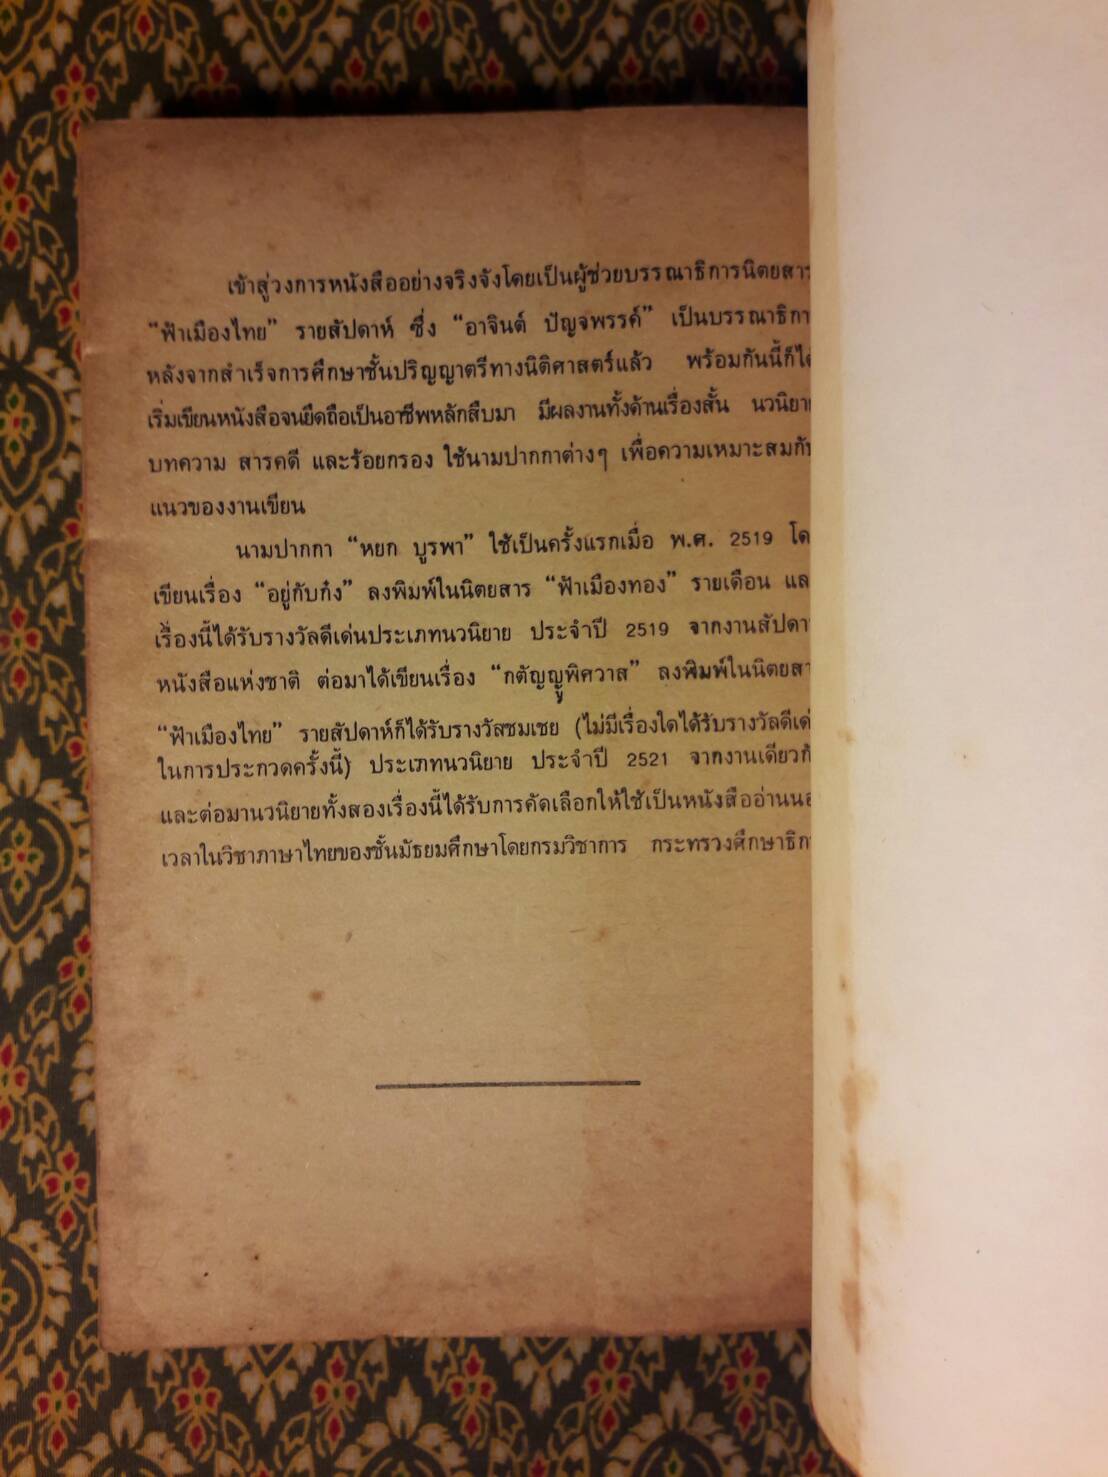 เข้าสู่วงการหนังสืออย่างจริงจังโดยเป็นผู้ช่วยบรรณาธิการนิตยสาร
“ฟ้าเมืองไทย” รายสัปดาห์ ซึ่ง “อาจินต์ ปัญจพรรค์” เป็นบรรณาธิกา
หลังจากสำเร็จการศึกษาชั้นปริญญาตรีทางนิติศาสตร์แล้ว พร้อมกันนี้ก็ได้
เริ่มเขียนหนังสือจนยึดถือเป็นอาชีพหลักสืบมา มีผลงานทั้งด้านเรื่องสั้น นวนิยาย
บทความ สารคดี และร้อยกรอง ใช้นามปากกาต่างๆ เพื่อความเหมาะสมกับ
แนวของงานเขียน
นามปากกา “หยก บูรพา” ใช้เป็นครั้งแรกเมื่อ พ.ศ. 2519 โด
เขียนเรื่อง “อยู่กับก๋ง” ลงพิมพ์ในนิตยสาร “ฟ้าเมืองทอง” รายเดือน แล
เรื่องนี้ได้รับรางวัลดีเด่นประเภทนวนิยาย ประจำปี 2519 จากงานสัปดา
หนังสือแห่งชาติ ต่อมาได้เขียนเรื่อง “กตัญญูพิศวาส” ลงพิมพ์ในนิตยสา
“ฟ้าเมืองไทย” รายสัปดาห์ก็ได้รับรางวัลชมเชย (ไม่มีเรื่องใดได้รับรางวัลดีเด่
ในการประกวดครั้งนี้) ประเภทนวนิยาย ประจำปี 2521 จากงานเดียวกั
และต่อมานวนิยายทั้งสองเรื่องนี้ได้รับการคัดเลือกให้ใช้เป็นหนังสืออ่านนอ
เวลาในวิชาภาษาไทยของชั้นมัธยมศึกษาโดยกรมวิชาการ กระทรวงศึกษาธิกา